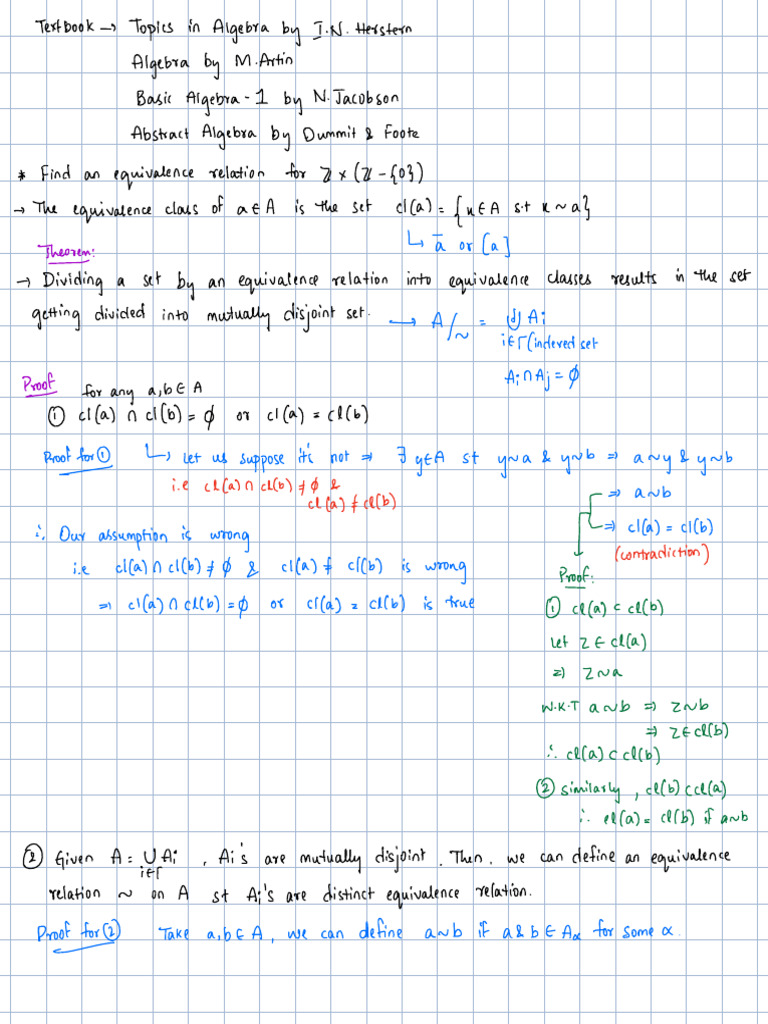 Textbook → Topics in Algebra by I.N. Herstern
Algebra by M.Artin
Basic Algebra - 1 by N.Jacobson
Abstract Algebra by Dummit & Foote
* Find an equivalence relation for ℤ × (ℤ - {0})
→ The equivalence class of a ∈ A is the set cl(a) = {x ∈ A s.t x ~ a}
↳ ā or [a]
Theorem:
→ Dividing a set by an equivalence relation into equivalence classes results in the set
getting divided into mutually disjoint set. → A/~ = ⊍ Ai
i∈Γ (indexed set
Ai ∩ Aj = ϕ
Proof for any a,b ∈ A
① cl(a) ∩ cl(b) = ϕ or cl(a) = cl(b)
Proof for ① ↳ Let us suppose it's not ⇒ ∃ y∈A st y~a & y~b ⇒ a~y & y~b
i.e cl(a) ∩ cl(b) ≠ ϕ &
cl(a) ≠ cl(b)
⇒ a~b
⇒ cl(a) = cl(b)
(contradiction)
∴ Our assumption is wrong
i.e cl(a) ∩ cl(b) ≠ ϕ & cl(a) ≠ cl(b) is wrong
⇒ cl(a) ∩ cl(b) = ϕ or cl(a) = cl(b) is true
Proof:
① cl(a) ⊂ cl(b)
Let z ∈ cl(a)
⇒ z~a
W.K.T a~b ⇒ z~b
⇒ z ∈ cl(b)
∴ cl(a) ⊂ cl(b)
② similarly, cl(b) ⊂ cl(a)
∴ cl(a) = cl(b) if a~b
② Given A = ∪ Ai , Ai's are mutually disjoint. Then, we can define an equivalence
i∈Γ
relation ~ on A st Ai's are distinct equivalence relation.
Proof for ② Take a,b ∈ A, we can define a~b if a & b ∈ Aα for some α.